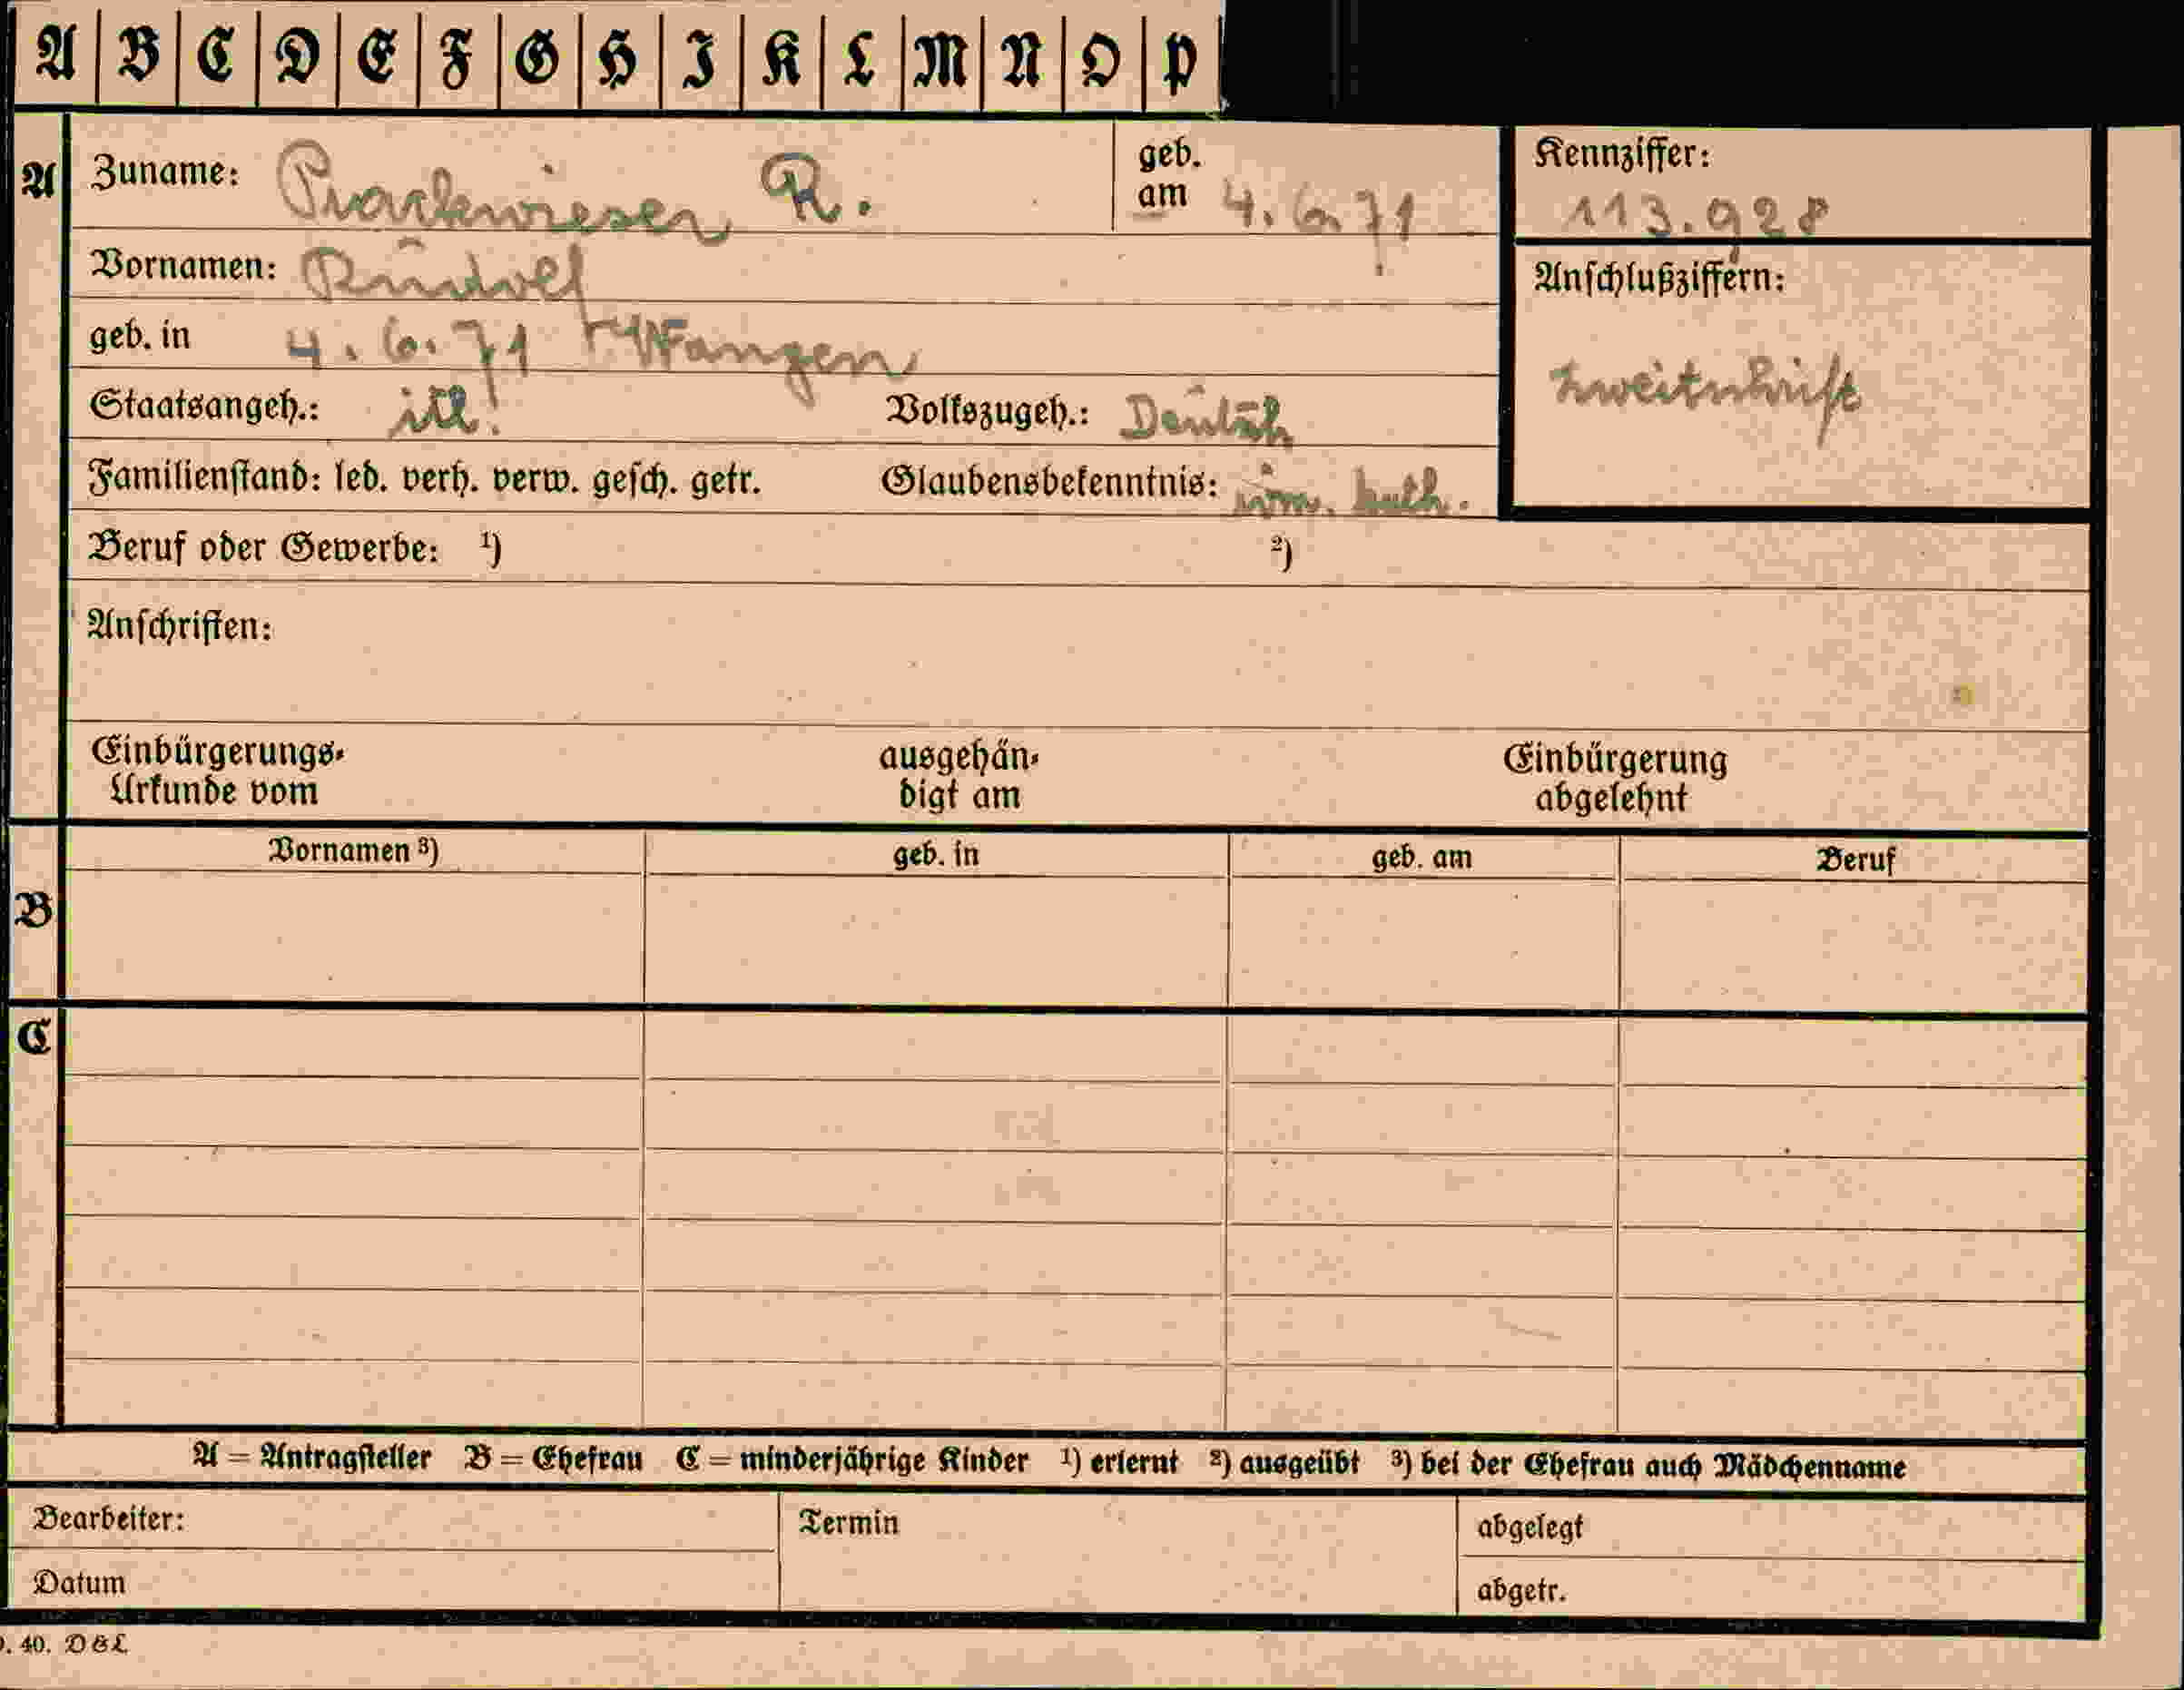 A B C D E F G H I K L M N O P
A Zuname: Prackwieser R. geb. am 4.6.71 Kennziffer: 113.928
Vornamen: Rudolf Anschlußziffern:
geb. in 4.6.71 Wangen Zweitschrift
Staatsangeh.: itl. Volkszugeh.: Deutsch
Familienstand: led. verh. verw. gesch. getr. Glaubensbekenntnis: röm. kath.
Beruf oder Gewerbe: ¹) ²)
Anschriften:
Einbürgerungs- ausgehän- Einbürgerung
Urkunde vom digt am abgelehnt
Vornamen ³) geb. in geb. am Beruf
B
C
A = Antragsteller B = Ehefrau C = minderjährige Kinder ¹) erlernt ²) ausgeübt ³) bei der Ehefrau auch Mädchenname
Bearbeiter: Termin abgelegt
Datum abgetr.
. 40. DEL